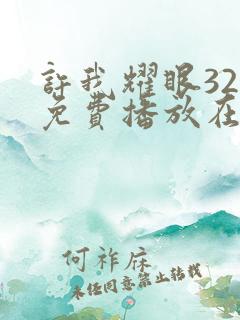 許我耀眼32
免費播放在
何祚庥
未经同意禁止转载